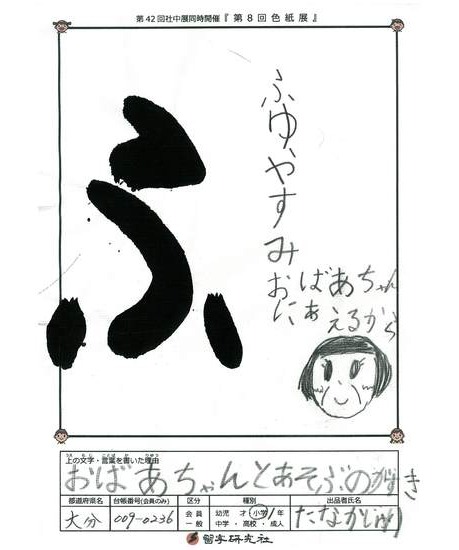 第42回社中展同時開催『第8回色紙展』
ふ
ふゆやすみ
おばあちゃん
にあえるから
上の文字・言葉を書いた理由
おばあちゃんとあそぶのがすき
都道府県名 台帳番号(会員のみ) 区分 種別 出品者氏名
大分 009-0236 会員 一般 幼児 才 小学1年 中学・高校・成人 たなか
習字研究社